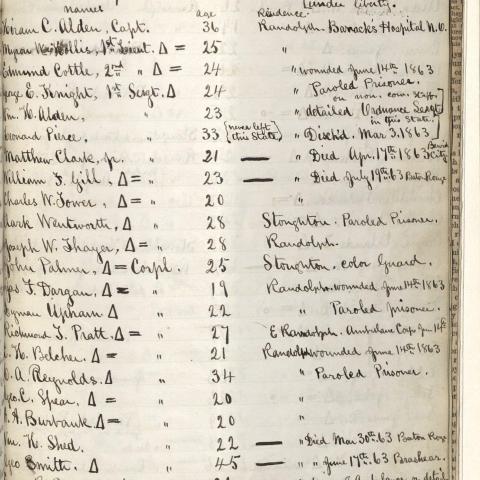 names age Residence. [under liberty.
Hiram C. Alden, Capt. 36 Randolph. Barrack's Hospital N.O.
Myron W. Hollis, 1st Lieut. Δ = 25 "
Edmund Cottle, 2nd " Δ = 24 " wounded June 14th 1863
George E. Knight, 1st Sergt. Δ 24 " Paroled Prisoner.
on non. com. staff.
Wm. H. Alden, 23 " detailed Ordnance Sergt
in this State.
Leonard Pierce, 33 [never left this State] " Disch'd. Mar. 3, 1863
Matthew Clark, jr. 21 — " Died Apr. 17th 1863
William F. Gill, Δ = " 23 — " Died July 19th. 63 Baton Rouge
Charles W. Tower, Δ = " 20 "
Mark Wentworth, Δ " 28 Stoughton. Paroled Prisoner.
Joseph W. Thayer, Δ = " 28 Randolph.
John Palmer, Δ = Corpl. 25 Stoughton. color Guard.
Jas F. Dargan, Δ = " 19 Randolph. wounded June 14th 1863
Lyman Upham Δ " 22 " Paroled prisoner.
Richmond T. Pratt. Δ = " 27 E Randolph. Ambulance Cap. Jun 14th
Belcher. Δ = " 21 Randolph wounded June 14th 1863
A. Reynolds. Δ " 34 " Paroled Prisoner.
Geo. C. Spear, Δ = " 20 "
A. Burbank Δ = " 20 "
Wm. K. Shed. " 22 — " Died Mar 30th. 63 Baton Rouge
Geo Smith. Δ " 45 — " " June 17th. 63 Brashear.